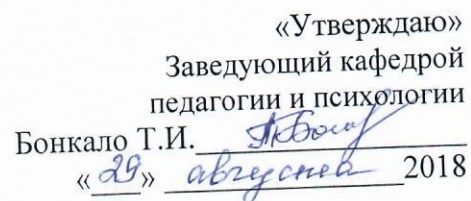 «Утверждаю»
Заведующий кафедрой
педагогии и психологии
Бонкало Т.И.
«29» августа 2018